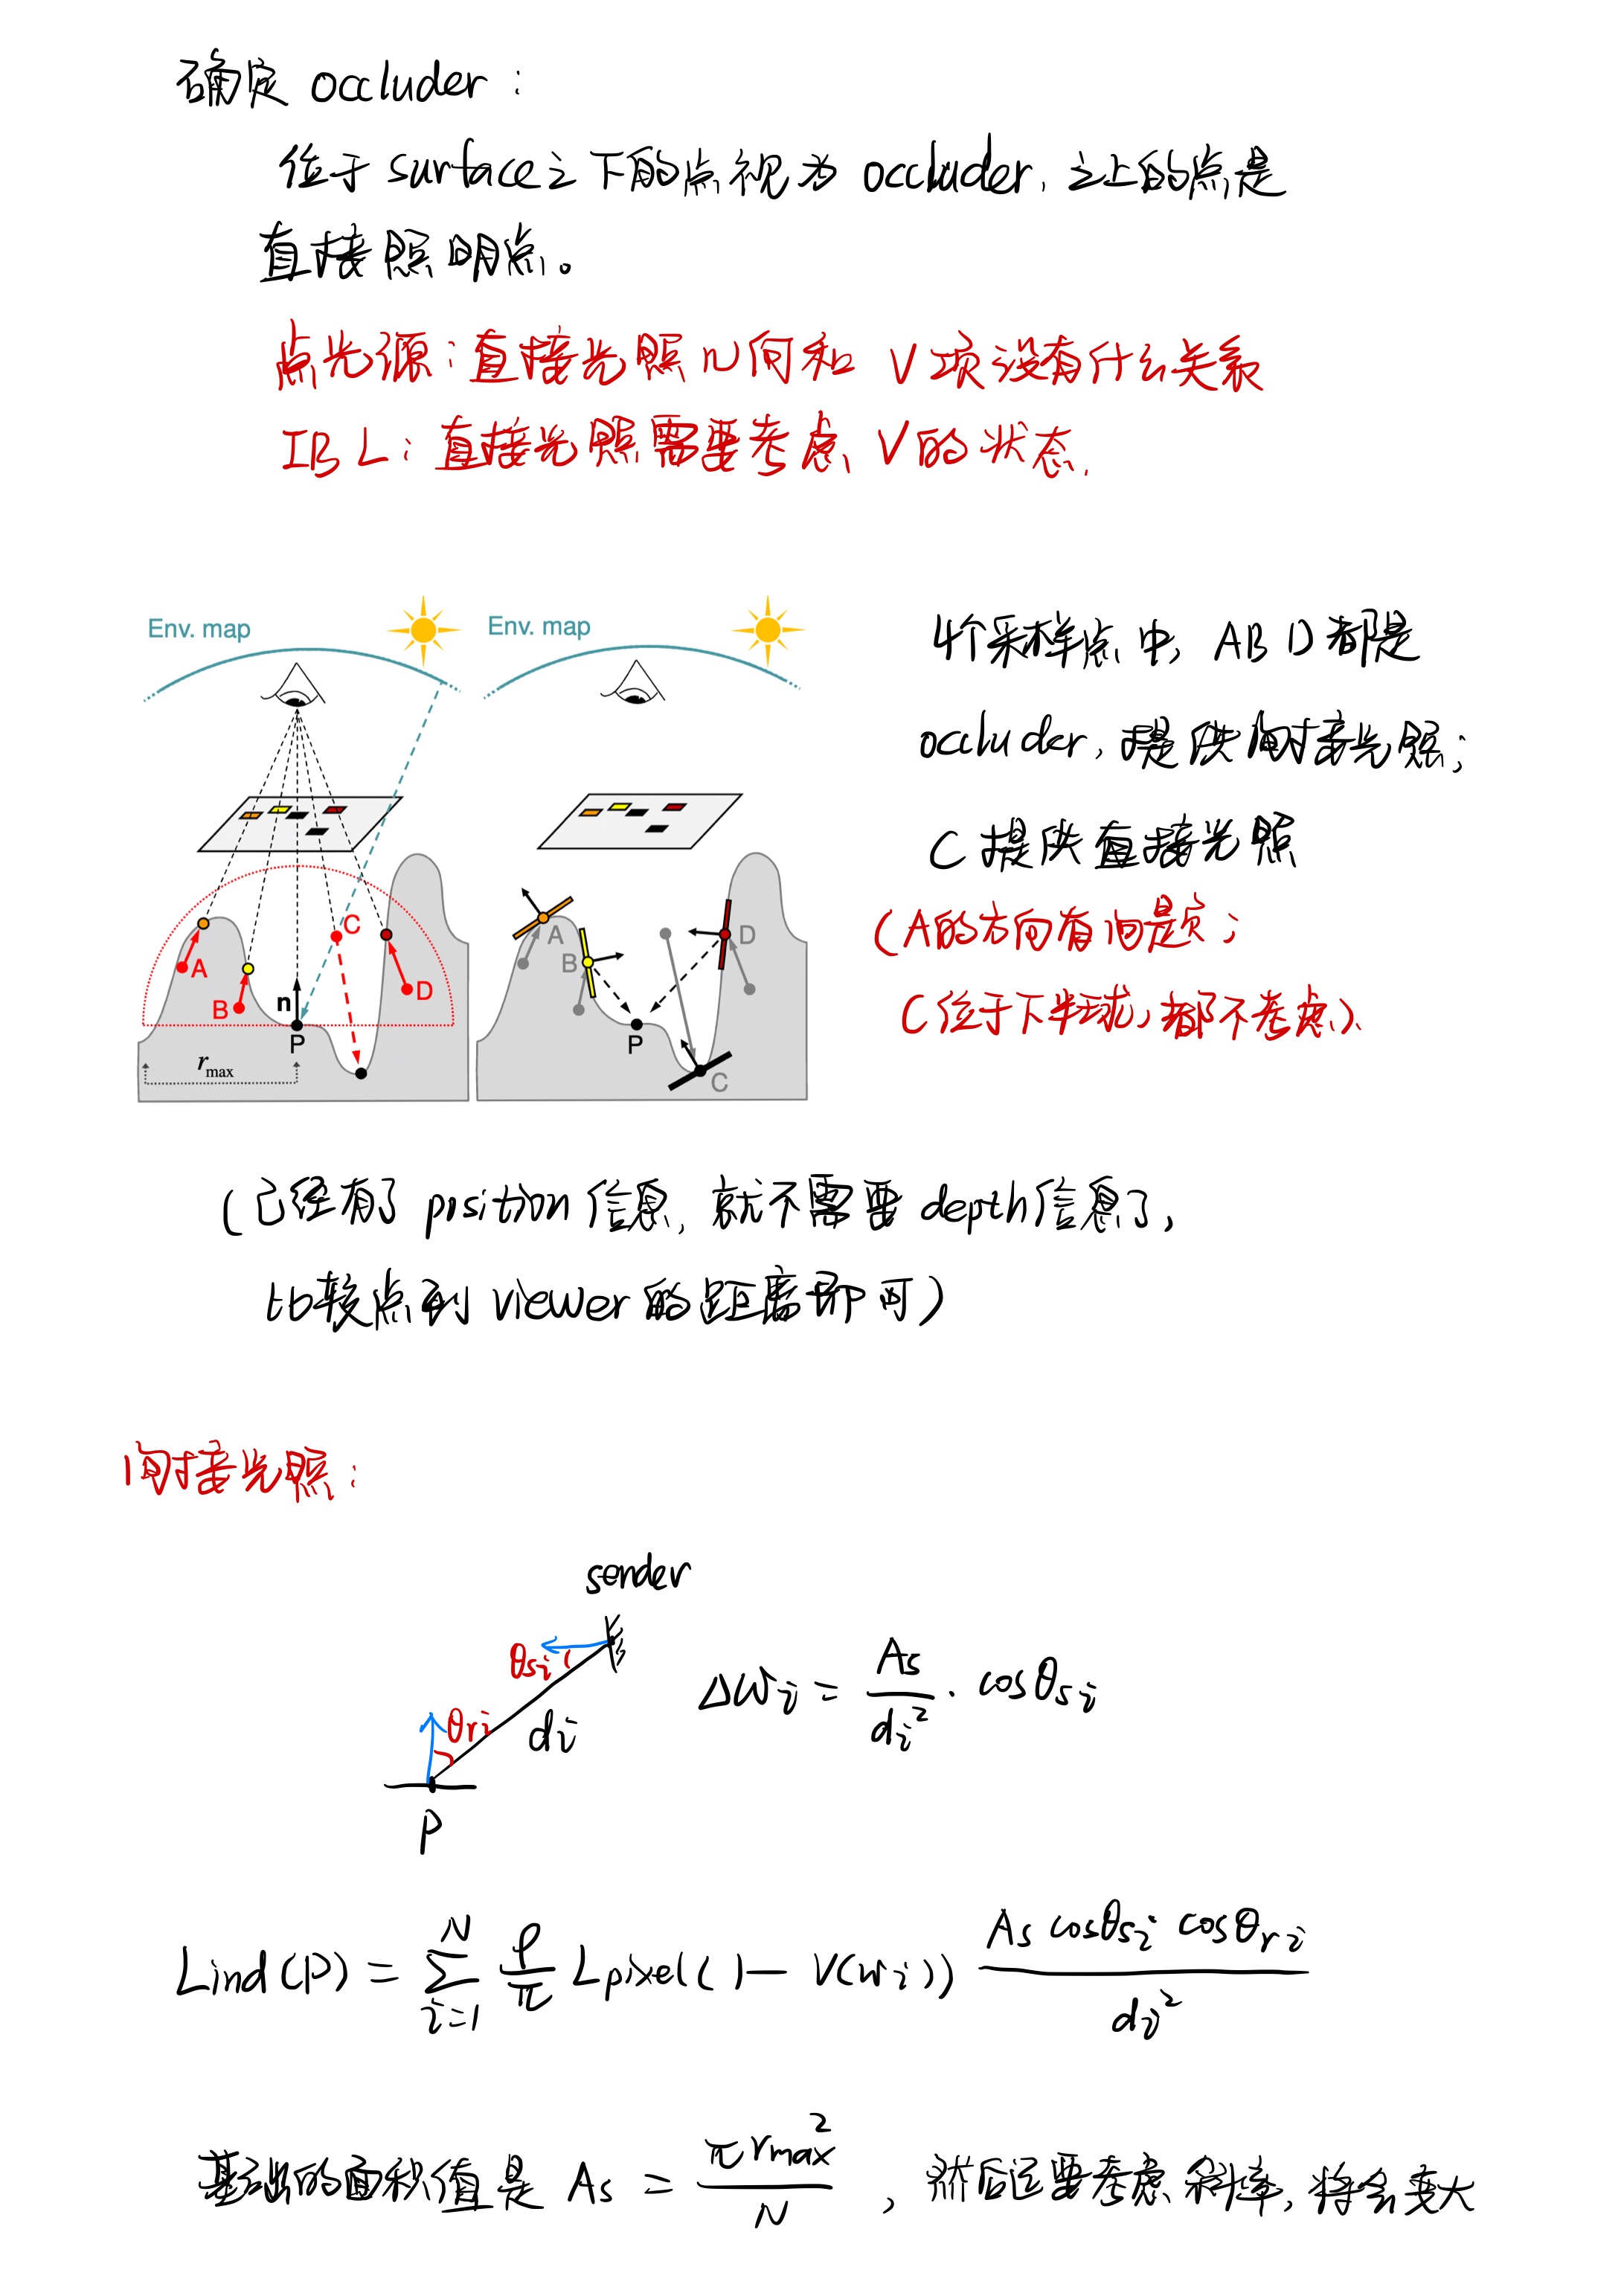 确定 occluder：
位于 surface之下的点视为 occluder，之上的点是
直接照明点。
点光源：直接光照 几何和 V项没有什么关系
IBL：直接光照需要考虑 V的状态.
Env. map
Env. map
A
B
C
D
n
P
r_max
A
B
D
P
C
4个采样点中, A B D 都是
occluder，提供间接光照；
C 提供直接光照
(A的方向有问题；
C位于下半球，都不考虑).
(已经有了 position 信息，就不需要 depth信息了，
比较点到 viewer 的距离即可)
间接光照：
sender
θsi
θri
di
P
Δωi = As / di² · cosθsi
Lind(P) = Σ_{i=1}^{N} ρ/π Lpixel(1− V(ωi)) As cosθsi cosθri / di²
基础的面积值是 As = πrmax² / N ，然后还要考虑斜率，将会变大